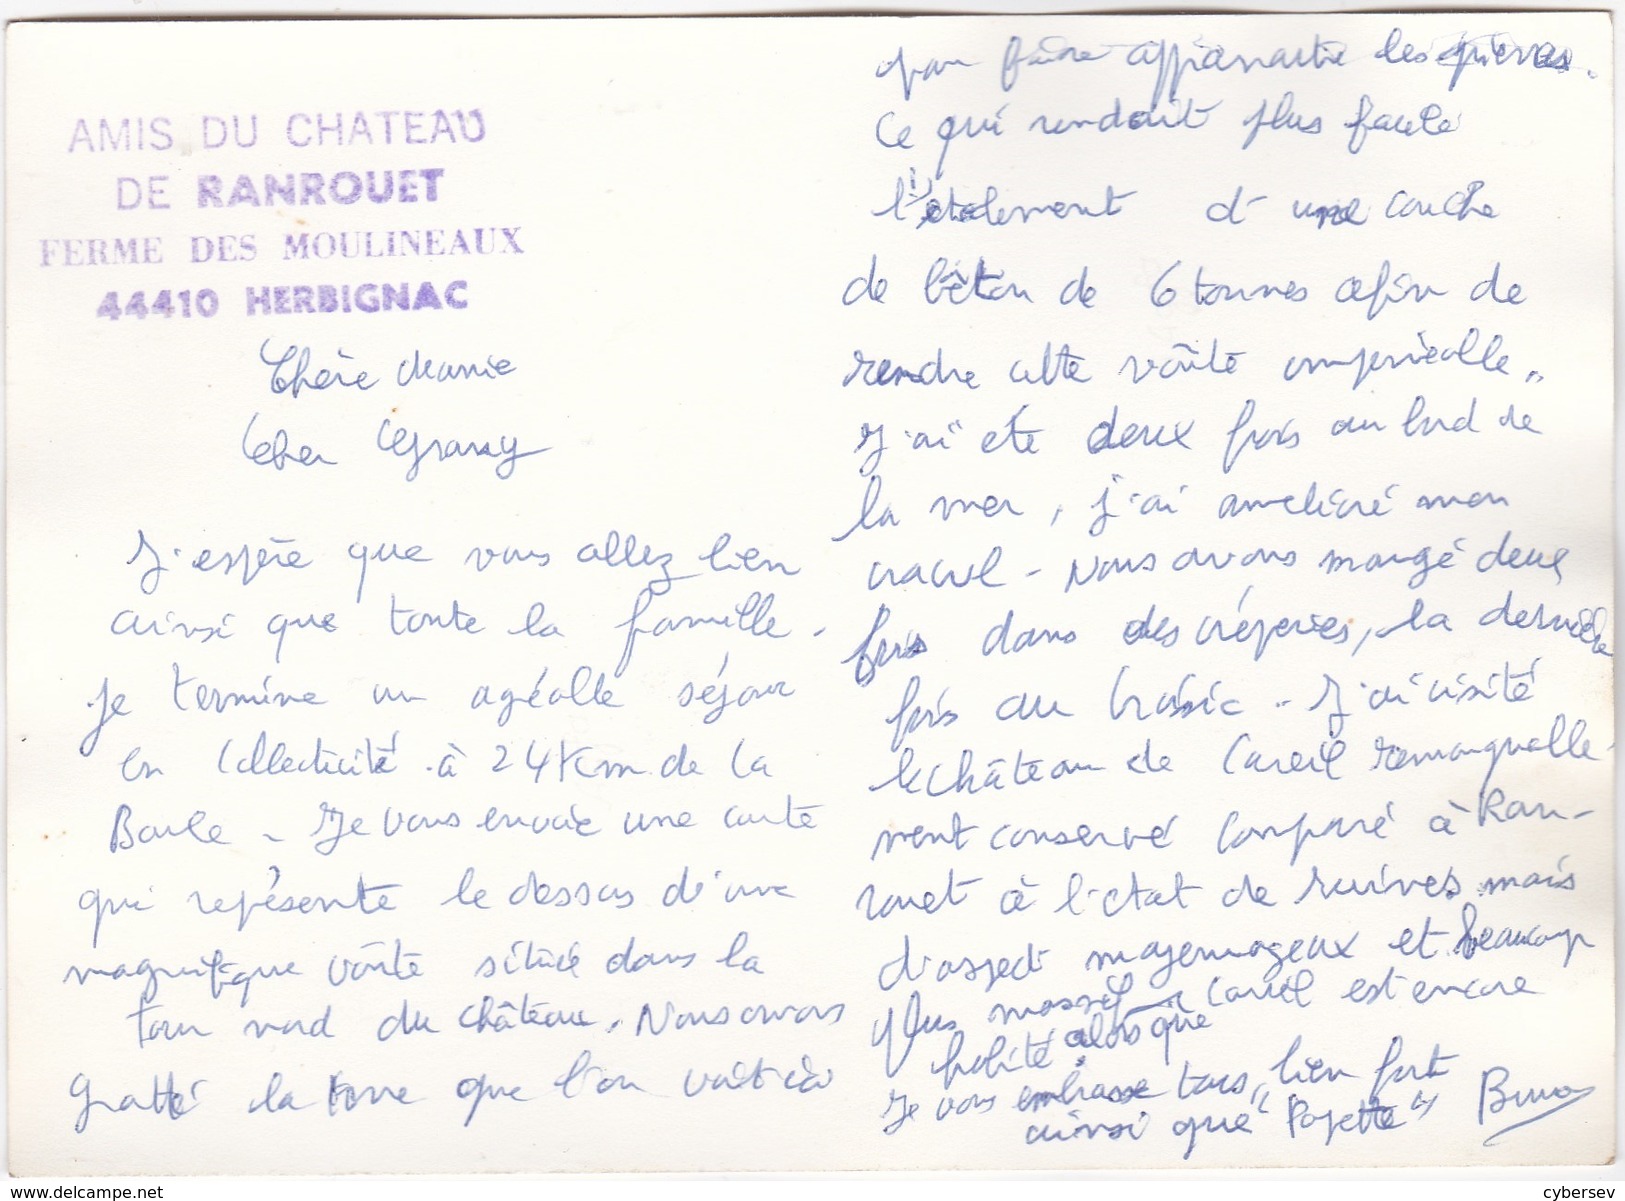 AMIS DU CHATEAU
DE RANROUET
FERME DES MOULINEAUX
44410 HERBIGNAC
Chère Mamie
Cher
J'espère que vous allez bien
ainsi que toute la famille.
Je termine un agréable séjour
en collectivité à 24 Km de La
Baule - Je vous envoie une carte
qui représente le dessus d'une
magnifique voûte située dans la
tour nord du château. Nous avons
gratté la terre que l'on voit ici
pour faire apparaitre les pierres.
Ce qui rendait plus facile
l'étalement d'une couche
de béton de 6 tonnes afin de
rendre cette voûte
J'ai été deux fois au bord de
la mer, j'ai amélioré mon
crawl - Nous avons mangé deux
fois dans des crêperies, la dernière
fois au Croisic - J'ai visité
le château de Careil remarquable-
ment conservé comparé à Ran-
rouet à l'état de ruines mais
d'aspect moyenageux et beaucoup
plus massif Careil est encore
habité alorsque
Je vous embrasse tous bien fort
ainsi que "Popette" Bruno
cybersev